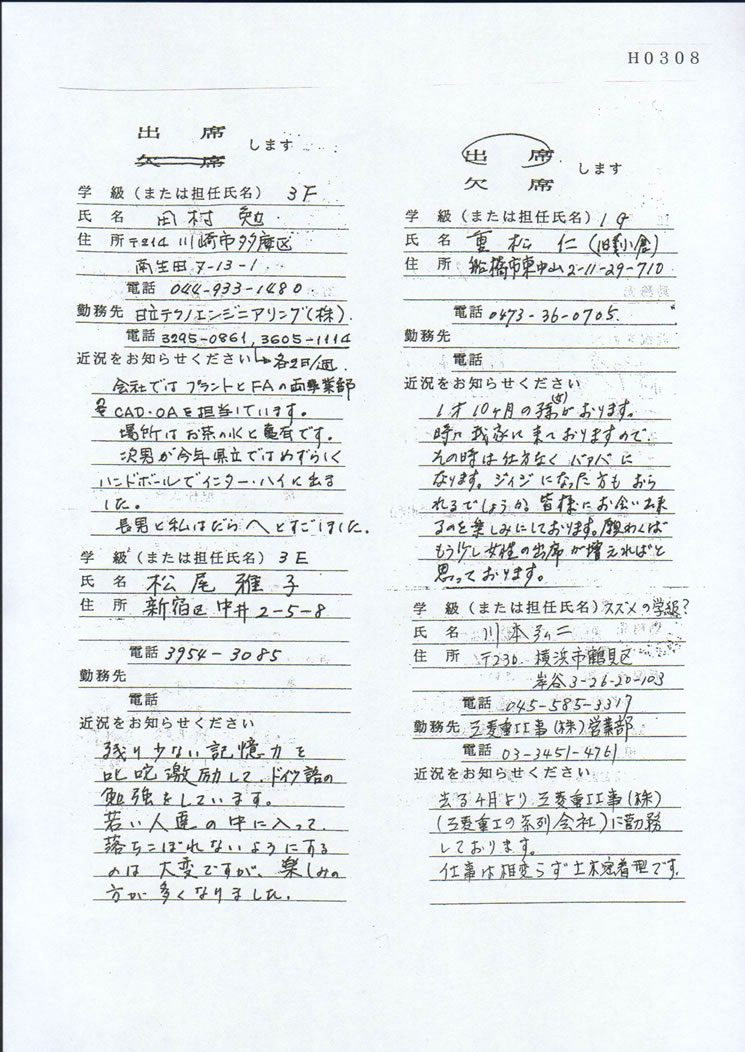 H0308
出 席
欠 席
します
学 級（または担任氏名） 3F
氏 名 田村 勉
住 所 〒214 川崎市多摩区
南生田7-13-1
電話 044-933-1480
勤務先 日立テクノエンジニアリング(株).
電話 3295-0861, 3605-1114
近況をお知らせください 各2日/週.
会社ではプラントとFAの両事業部
CAD・OAを担当しています。
場所はお茶の水と亀有です。
次男が今年県立ではめずらしく
ハンドボールでインター・ハイに出ま
した。
長男と私はだらへとすごしました.
学 級（または担任氏名） 3E
氏 名 松尾 雅子
住 所 新宿区中井2-5-8
電話 3954-3085
勤務先
電話
近況をお知らせください
残り少ない記憶力を
叱咤激励して、ドイツ語の
勉強をしています。
若い人達の中に入って、
落ちこぼれないようにする
のは大変ですが、楽しみの
方が多くなりました.
出 席
欠 席
します
学 級（または担任氏名） 1G
氏 名 重松 仁 (旧小倉)
住 所 船橋市東中山2-11-29-710
電話 0473-36-0705.
勤務先
電話
近況をお知らせください
1才10ヶ月の孫(女)がおります。
時に我家に来ておりますので、
その時は仕方なくバァバに
なります。ジイジになった方もおら
れるでしょうか 皆様にお会い出来
るのを楽しみにしております。願わくば
もう少し女性の出席が増えればと
思っております。
学 級（または担任氏名）スズメの学級?
氏 名 川本
住 所 〒230 横浜市鶴見区
岸谷3-26-20-103
電話 045-585-3317
勤務先 三菱重工工事(株)営業部
電話 03-3451-4761
近況をお知らせください
去る4月より三菱重工工事(株)
(三菱重工の系列会社)に勤務
しております。
仕事は相変らず土木定着型です.